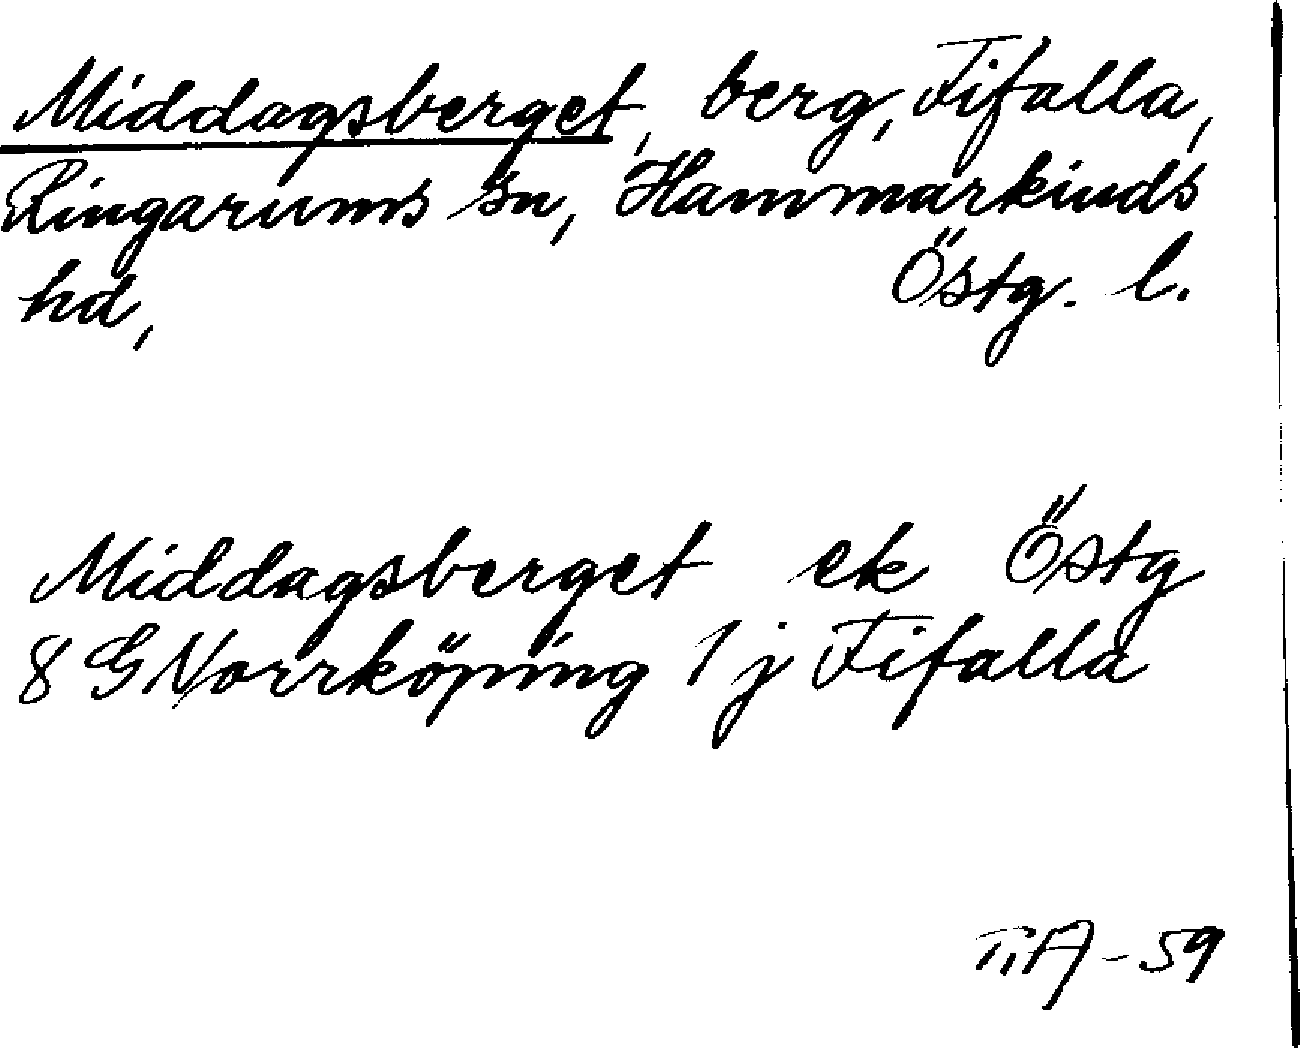 Middagsberget, berg, Fifalla,
Ringarums sn, Hammarkinds
hd, Östg. l.
Middagsberget ek Östg
8 G Norrköping 1 j Fifalla